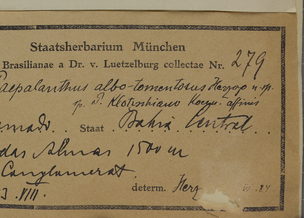 Staatsherbarium München
Brasilianae a Dr. v. Luetzelburg collectae Nr. 279
Paepalanthus albo-tomentosus Herzog n. sp.
sp. P. Klotzschiano Koern. affinis
Staat Bahia Central
das Almas 1500 m
Conglomerat.
3. VIII. determ. Herz